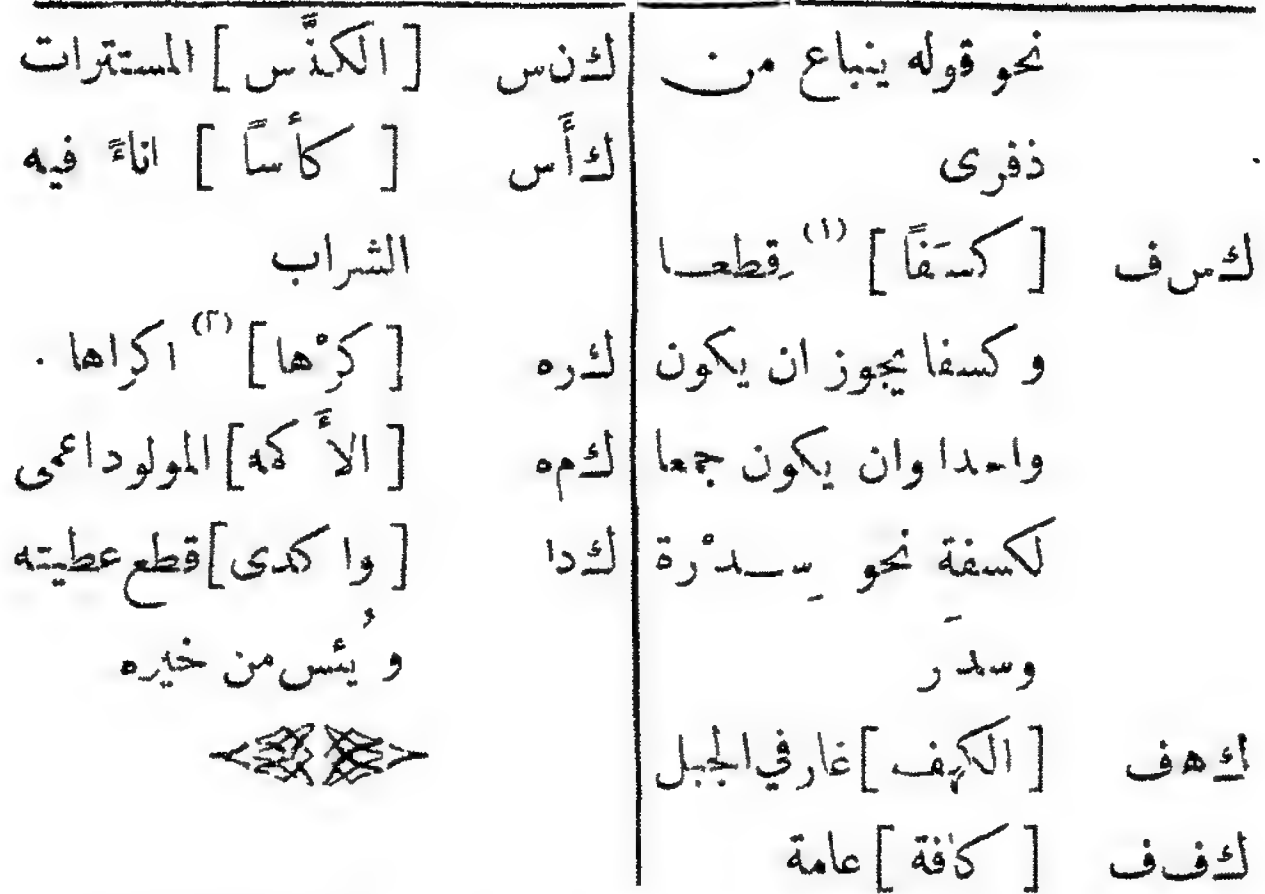 نحو قوله ينباع من
ذفرى
ك س ف [ كسَفاً ] (١) قِطعا
و كسفا يجوز ان يكون
واحدا وان يكون جمعا
لكسفةٍ نحو سِدْرة
وسِدَر
ك ه ف [ الكهف ] غار في الجبل
ك ف ف [ كافة ] عامة
ك ن س [ الكنَّس ] المستترات
ك أ س [ كأساً ] اناءً فيه
الشراب
ك ره [ كرْها ] (٢) اكراها .
ك م ه [ الأَكمه ] المولود اعمى
ك دا [ واكدى ] قطع عطيته
و يُئس من خيره